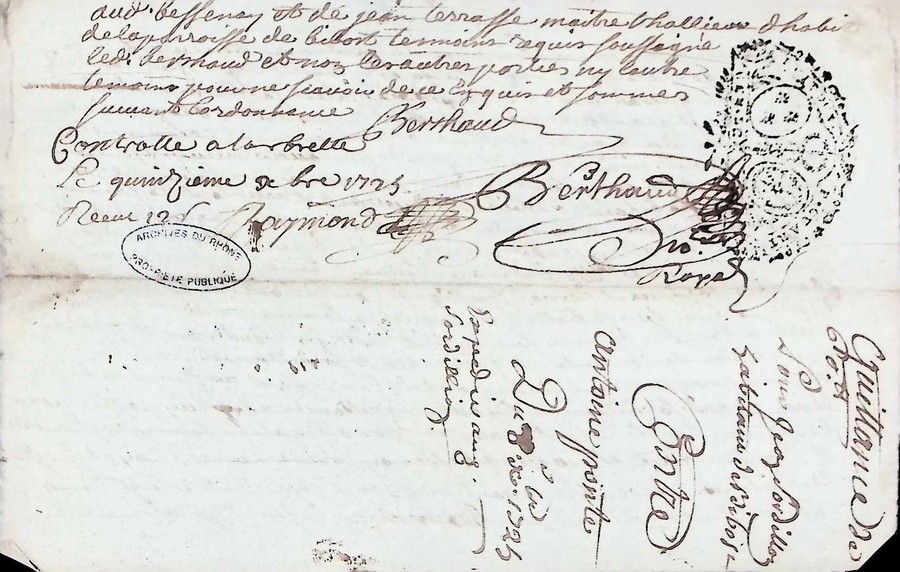 aud. bessenay et de jean terrasse maitre challieur dhabit
de la parroisse de bibost temoins requis soussigné
led. berthaud et non les autres parties ny lautre
temoins pour ne scavoir de ce enquis et sommes
suivant lordonnance Berthaud
Controlle a larbrelle
Le quinzieme xbre 1725
Receu 12 s Raymond
Berthaud
No.re
Royal
ARCHIVES DU RHÔNE
PROPRIÉTÉ PUBLIQUE
Quittance de
Louis Jean Sordillon
habitant de bibost
Contre
Antoine ponte
Du 8 xbre 1725
Expedié aux
Sordillon